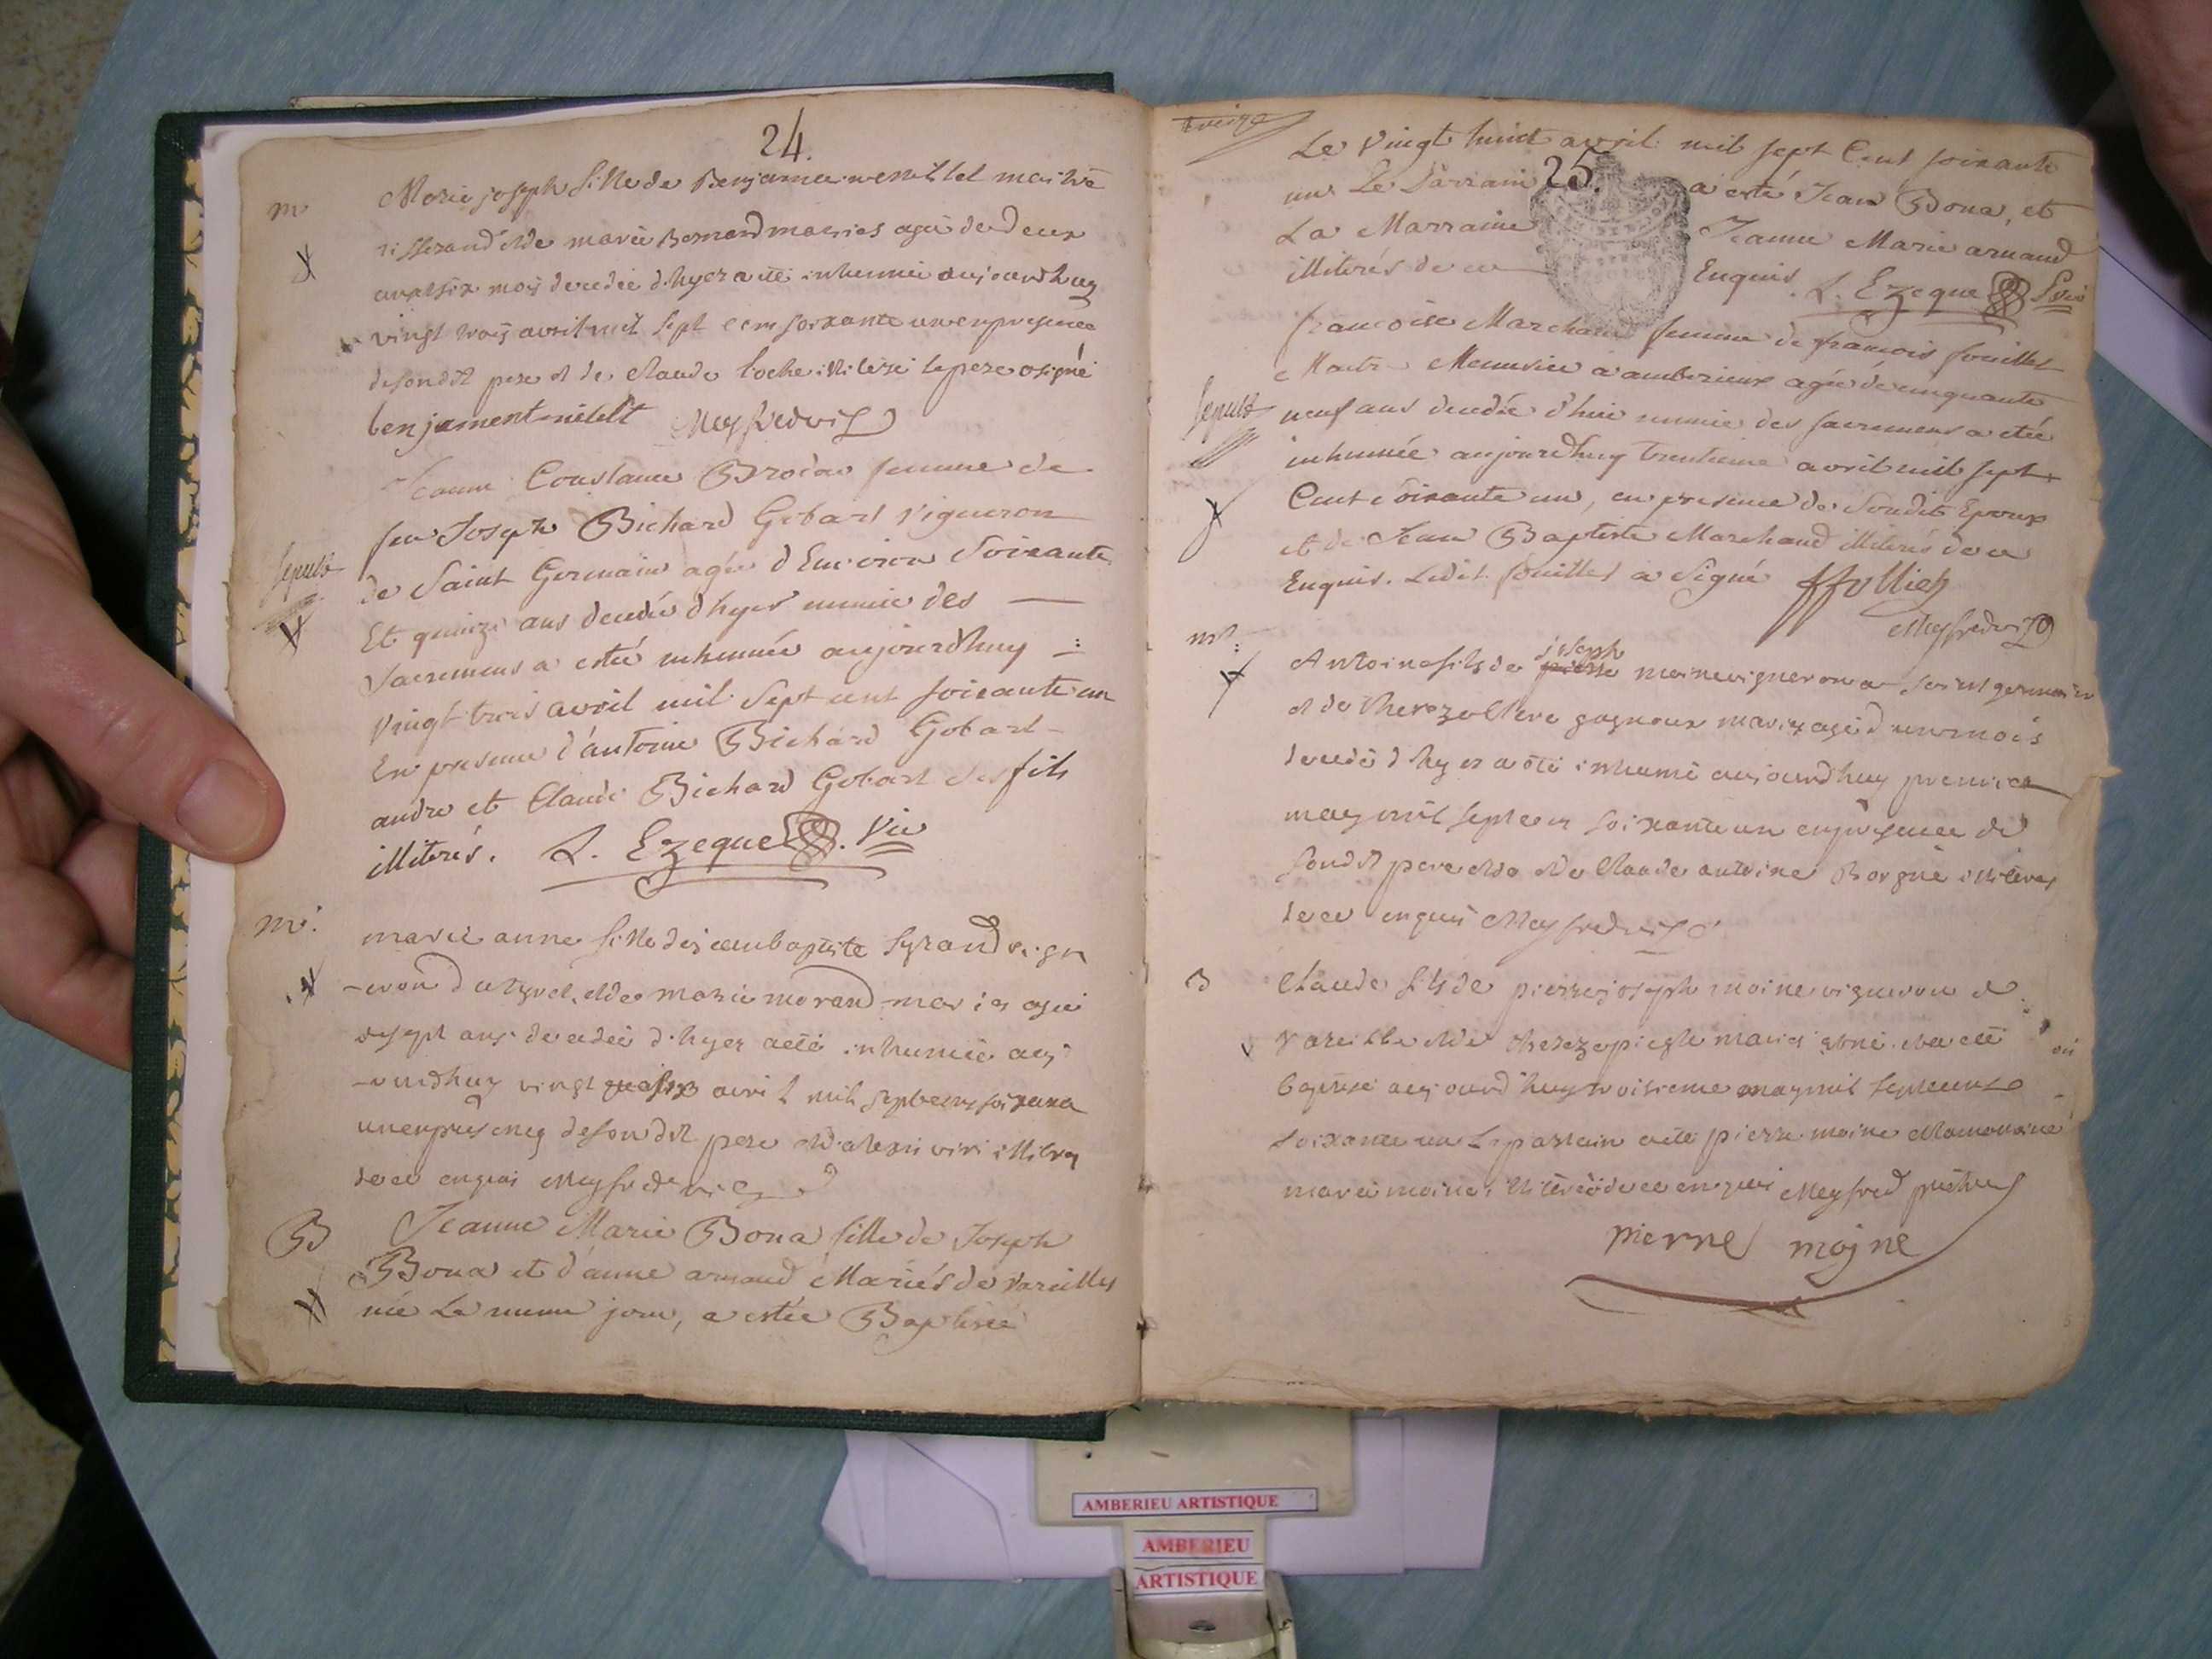 24.
m
Marie joseph fille de Benjamin mait
tisserand et de marie Bernard maries agee de deux
ans et six mois decedee d'hyer a ete inhumee aujourd huy
vingt trois avril mil sept cent soixante un en presence
de son dit pere et de claude loche le pere a signé
benjament Meyfred vic
Jeanne Constance Brodas femme de
feu Joseph Bichard Gobart vigneron
Sepult
de Saint Germain agée d'Environ Soixante
Et quinze ans decedée d'hyer munie des
Sacremens a estée inhumée aujourdhuy
vingt trois avril mil sept cent soixante un
En presence d'antoine Bichard Gobart
andre et Claude Bichard Gobart ses fils
illiterés. L. Ezeque Vic
m.
marie anne fille de jean baptiste Sirand vign
-eron et de marie morand maries agée
de sept ans decedée d'hyer a eté inhumée auj
-ourdhuy vingt six avril mil sept cent soixante
un en presence de son dit pere et d'alexis illiteres
de ce enquis Meyfred vic
B
Jeanne Marie Bona fille de Joseph
Bona et d'anne arnaud Mariés de Vareilles
née Le meme jour, a estée Baptisée
25.
Le Vingt huit avril mil sept Cent soixante
un Le Parrain a esté Jean Bona, et
La Marraine Jeanne Marie arnaud
illiterés de ce Enquis. L. Ezeque Vic
francoise Marchand femme de francois fouilliet
Maitre Menusier a amberieux agée de cinquante
Sepult
neuf ans decedée d'hier munie des sacremens a eté
inhumée aujourdhuy trentieme avril mil sept
Cent soixante un, en presence de Soudit Epoux
et de Jean Baptiste Marchand illiterés de ce
Enquis. Ledit fouilliet a Signé
Meyfred vic
m.
Antoine fils de joseph moine vigneron a saint germain
et de Thereze gagneux maries agé d'un mois
decedé d'hyer a eté inhumé aujourdhuy premier
may mil sept cent soixante un en presence de
sondit pere et de Claude antoine Borgne illiteres
de ce enquis Meyfred vic
B
Claude fils de pierre joseph moine vigneron de
Vareille et de Thereze maries né et a eté
baptisé aujourd'huy troisieme may mil sept cent
soixante un Le parrain a eté pierre moine et la maraine
marie moine illiterée de ce enquis Meyfred
pierre moine
AMBERIEU ARTISTIQUE
AMBERIEU
ARTISTIQUE